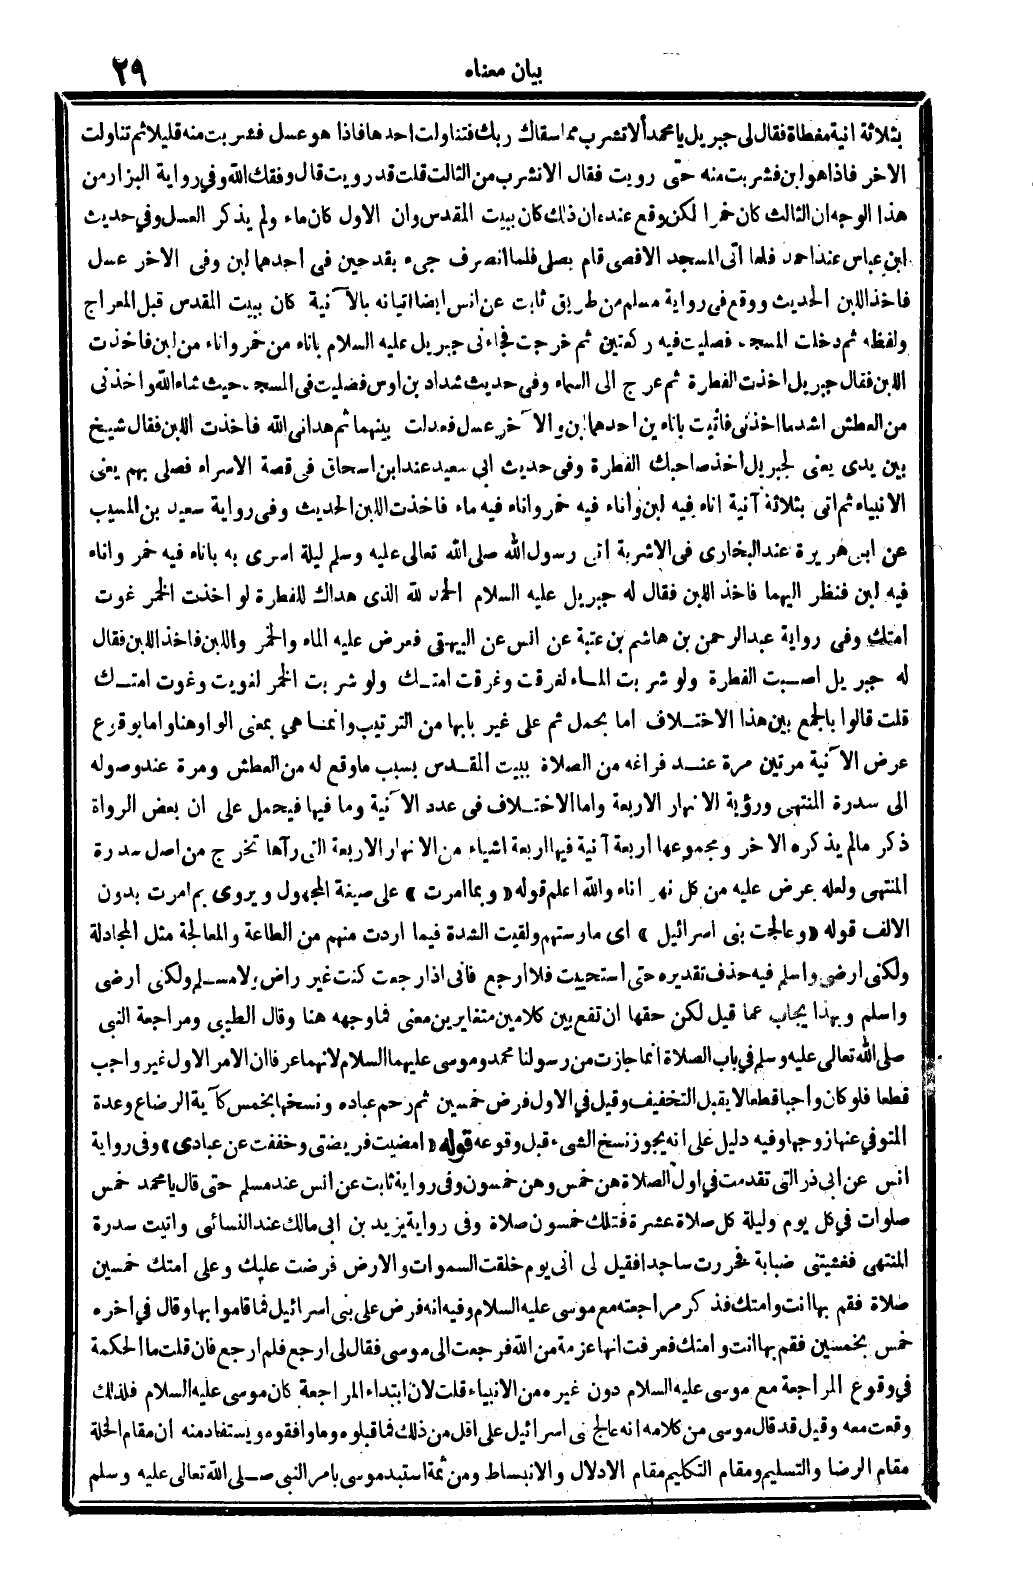 بيان معناه ٢٩
بثلاثة انية مغطاة فقال لى جبريل يا محمد ألا تشرب مما سقاك ربك فتناولت احدها فاذا هو عسل فشربت منه قليلا ثم تناولت
الاخر فاذا هو لبن فشربت منه حتى رويت فقال الا تشرب من الثالث قلت قد رويت قال وفقك الله وفي رواية البزار من
هذا الوجه ان الثالث كان خمرا لكن وقع عنده ان ذلك كان ببيت المقدس وان الاول كان ماء ولم يذكر العسل وفي حديث
ابن عباس عند احمد فلما اتى المسجد الاقصى قام يصلى فلما انصرف جىء بقدحين فى احدهما لبن وفى الاخر عسل
فاخذ اللبن الحديث ووقع فى رواية مسلم من طريق ثابت عن انس ايضا اتيانه بالآنية كان ببيت المقدس قبل المعراج
ولفظه ثم دخلت المسجد فصليت فيه ركعتين ثم خرجت فجاءنى جبريل عليه السلام باناء من خمر واناء من لبن فاخذت
اللبن فقال جبريل اخذت الفطرة ثم عرج الى السماء وفى حديث شداد بن اوس فصليت فى المسجد حيث شاء الله واخذنى
من العطش اشد ما اخذنى فاتيت باناءين احدهما لبن والآخر عسل فعدلت بينهما ثم هدانى الله فاخذت اللبن فقال شيخ
بين يدى يعنى لجبريل اخذ صاحبك الفطرة وفى حديث ابى سعيد عند ابن اسحاق فى قصة الاسراء فصلى بهم يعنى
الانبياء ثم اتى بثلاثة آنية اناء فيه لبن وأناء فيه خمر واناء فيه ماء فاخذت اللبن الحديث وفى رواية سعيد بن المسيب
عن ابى هريرة عند البخارى فى الاشربة اتى رسول الله صلى الله تعالى عليه وسلم ليلة اسرى به باناء فيه خمر واناء
فيه لبن فنظر اليهما فاخذ اللبن فقال له جبريل عليه السلام الحمد لله الذى هداك للفطرة لو اخذت الخمر غوت
امتك وفى رواية عبد الرحمن بن هاشم بن عتبة عن انس عن البيهقى فعرض عليه الماء والخمر واللبن فاخذ اللبن فقال
له جبريل اصبت الفطرة ولو شربت الماء لغرقت وغرقت امتك ولو شربت الخمر لغويت وغوت امتك
قلت قالوا بالجمع بين هذا الاختلاف اما بحمل ثم على غير بابها من الترتيب وانما هي بمعنى الواو هنا واما بوقوع
عرض الآنية مرتين مرة عند فراغه من الصلاة ببيت المقدس بسبب ما وقع له من العطش ومرة عند وصوله
الى سدرة المنتهى ورؤية الانهار الاربعة واما الاختلاف فى عدد الآنية وما فيها فيحمل على ان بعض الرواة
ذكر ما لم يذكره الاخر ومجموعها اربعة آنية فيها اربعة اشياء من الانهار الاربعة التى رآها تخرج من اصل سدرة
المنتهى ولعله عرض عليه من كل نهر اناء والله اعلم قوله « وبما امرت » على صيغة المجهول ويروى بم امرت بدون
الالف قوله « وعالجت بنى اسرائيل » اى مارستهم ولقيت الشدة فيما اردت منهم من الطاعة والمعالجة مثل المجادلة
ولكنى ارضى واسلم فيه حذف تقديره حتى استحييت فلا ارجع فانى اذا رجعت كنت غير راض ولا مسلم ولكنى ارضى
واسلم وبهذا يجاب عما قيل لكن حقها ان تقع بين كلامين متغايرين معنى فما وجهه هنا وقال الطيبى ومراجعة النبي
صلى الله تعالى عليه وسلم في باب الصلاة انما جازت من رسولنا محمد وموسى عليهما السلام لانهما عرفا ان الامر الاول غير واجب
قطعا فلو كان واجبا قطعا لا يقبل التخفيف وقيل في الاول فرض خمسين ثم رحم عباده ونسخها بخمس كآية الرضاع وعدة
المتوفي عنها زوجها وفيه دليل على انه يجوز نسخ الشىء قبل وقوعه قوله « امضيت فريضتى وخففت عن عبادى» وفى رواية
انس عن ابى ذر التى تقدمت في اول الصلاة هن خمس وهن خمسون وفى رواية ثابت عن انس عند مسلم حتى قال يا محمد خمس
صلوات في كل يوم وليلة كل صلاة عشرة فتلك خمسون صلاة وفى رواية يزيد بن ابى مالك عند النسائى واتيت سدرة
المنتهى فغشيتنى ضبابة فخررت ساجدا فقيل لى انى يوم خلقت السموات والارض فرضت عليك وعلى امتك خمسين
صلاة فقم بها انت وامتك فذكر مراجعته مع موسى عليه السلام وفيه انه فرض على بنى اسرائيل فما قاموا بها وقال في اخره
خمس بخمسين فقم بها انت وامتك فعرفت انها عزمة من الله فرجعت الى موسى فقال لى ارجع فلم ارجع فان قلت ما الحكمة
في وقوع المراجعة مع موسى عليه السلام دون غيره من الانبياء قلت لان ابتداء المراجعة كان موسى عليه السلام فلذلك
وقعت معه وقيل قد قال موسى من كلامه انه عالج بنى اسرائيل على اقل من ذلك فما قبلوه وما وافقوه ويستفاد منه ان مقام الخلة
مقام الرضا والتسليم ومقام التكليم مقام الادلال والانبساط ومن ثمة استبد موسى بامر النبى صلى الله تعالى عليه وسلم